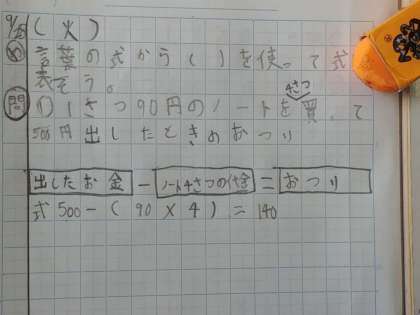 9/25(火)
め 言葉の式から( )を使って式で表そう。
問 ①1さつ90円のノートを4さつ買って
500円出したときのおつり
出したお金 － ノート4さつの代金 ＝ おつり
式 500－(90×4)＝140